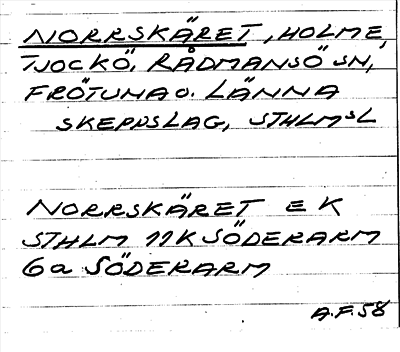 NORRSKÄRET, HOLME,
TJOCKÖ, RÅDMANSÖ SN,
FRÖTUNA O. LÄNNA
SKEPPSLAG, STHLMSL
NORRSKÄRET EK
STHLM 11K SÖDERARM
6a SÖDERARM
A.F.58